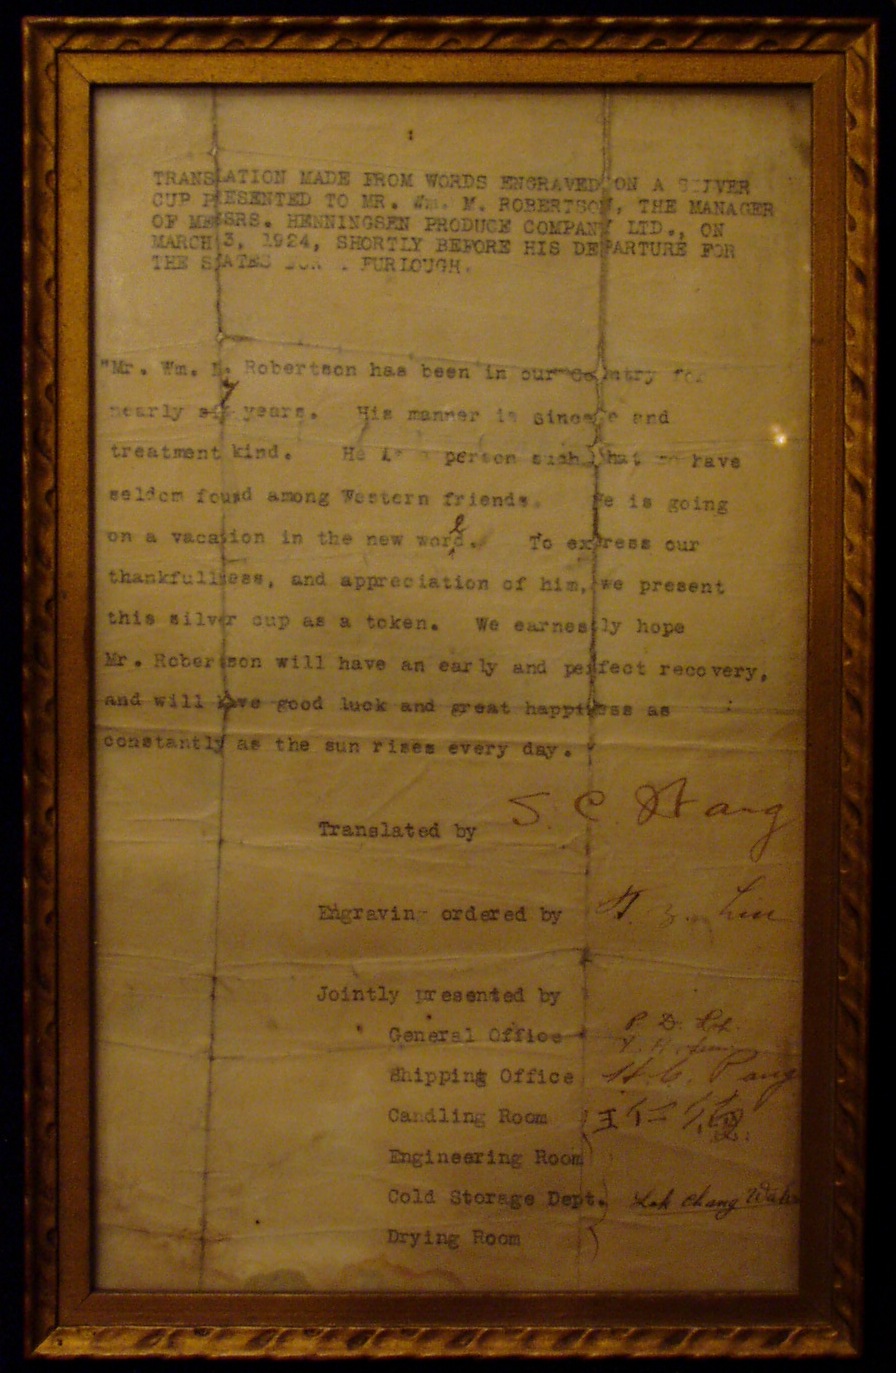 TRANSLATION MADE FROM WORDS ENGRAVED ON A SILVER
CUP PRESENTED TO MR. Wm. M. ROBERTSON, THE MANAGER
OF MESSRS. HENNINGSEN PRODUCE COMPANY LTD., ON
MARCH 3, 1924, SHORTLY BEFORE HIS DEPARTURE FOR
THE STATES FURLOUGH.
"Mr. Wm. M. Robertson has been in our Country for
nearly 7 years. His manner is sincere and
treatment kind. He is a person such that we have
seldom found among Western friends. He is going
on a vacation in the new world. To express our
thankfullness, and appreciation of him, we present
this silver cup as a token. We earnestly hope
Mr. Robertson will have an early and perfect recovery,
and will have good luck and great happiness as
constantly as the sun rises every day.
Translated by S. C.
Engraving ordered by
Jointly presented by
General Office P. D.
Shipping Office Pang
Candling Room 王
Engineering Room
Cold Storage Dept. Lok Chang
Drying Room